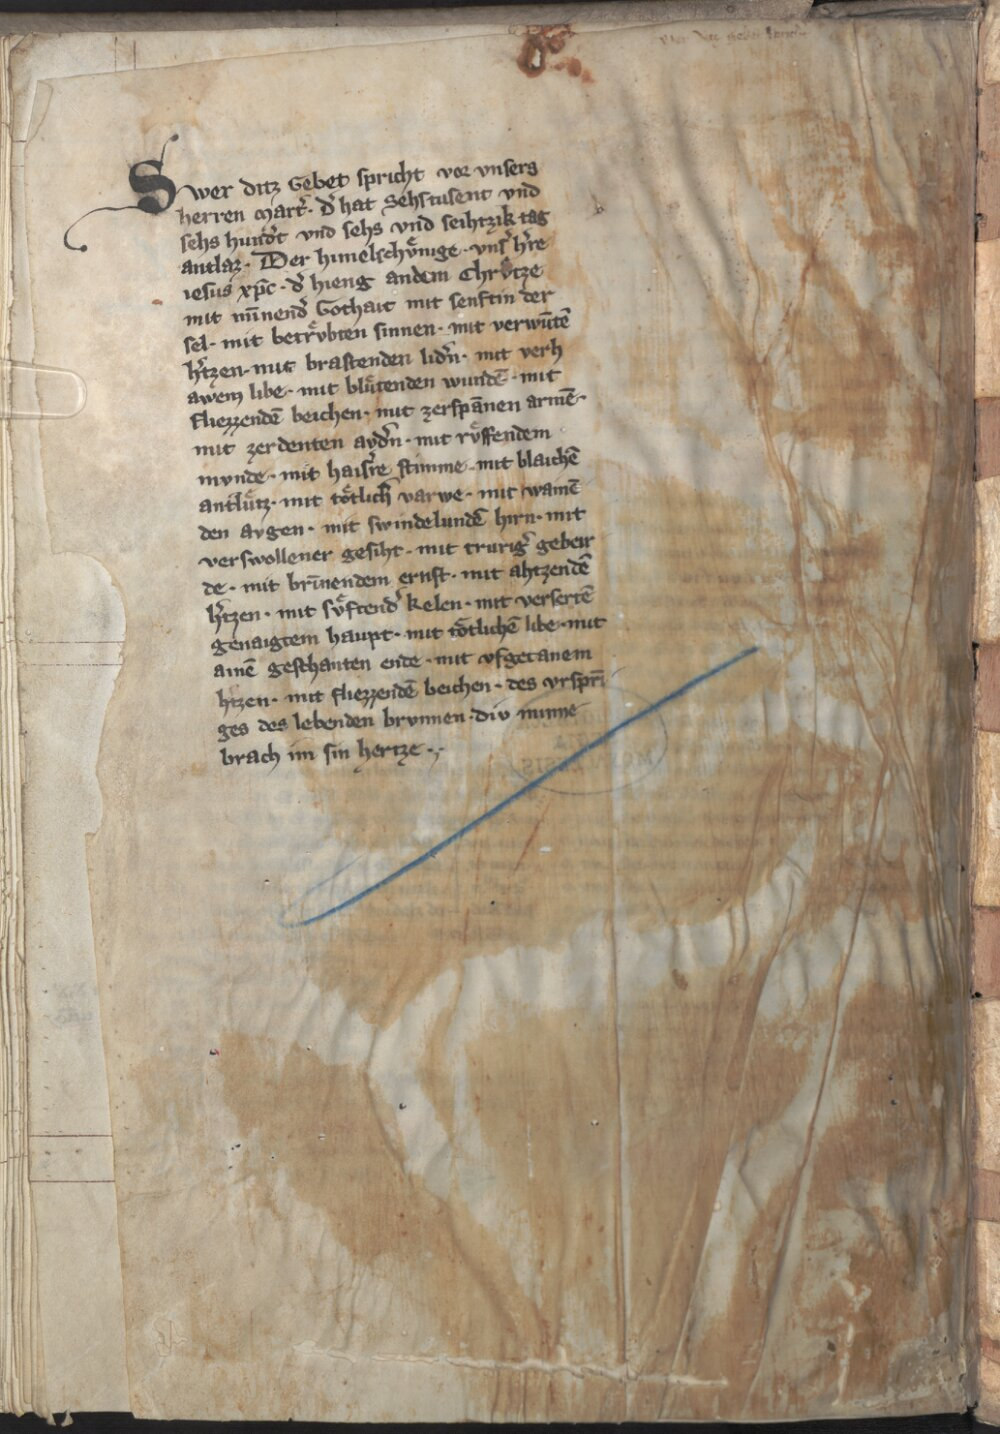 Swer ditz Gebet spricht vor vnsers
herren Mart᷑· d᷑ hat Sehstusent vnd
sehs hund᷑t vnd sehs vnd sehtzik tag
antlaz· Der himelschoͤnige· vns᷑ h᷑re
iesus xp̄c· d᷑ hieng andem Chrvͤtze
mit mīnend᷑ Gothait mit senftin der
sel· mit betrvͤbten sinnen· mit verwūtē
h᷑tzen· mit brastenden lid᷑n· mit verh
awem libe· mit bluͤtenden wundē· mit
fliezzendē beichen· mit zerspānen armē·
mit zerdenten ayd᷑n· mit rvͤffendem
mvnde· mit hais᷑re stimme· mit blaichē
antluͤtz· mit toͤtlich᷑ varwe· mit wainē
den avgen· mit swindelundē hirn· mit
verswollener gesiht· mit trurig᷑ gebeir
de· mit brīnendem ernst· mit ahtzendē
h᷑tzen· mit svͤftend᷑ kelen· mit versertē
genaigtem haupt· mit toͤtlichē libe· mit
ainē geschanten ende· mit vfgetanem
h᷑tzen· mit fliezzendē beichen· des vrspr̄i
ges des lebenden brvnnen· div minne
brach im sin hertze·